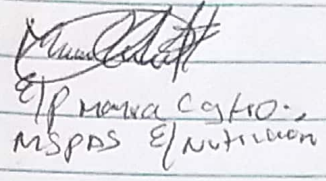 E/P Maria Castro.,
MSPAS E/Nutricion